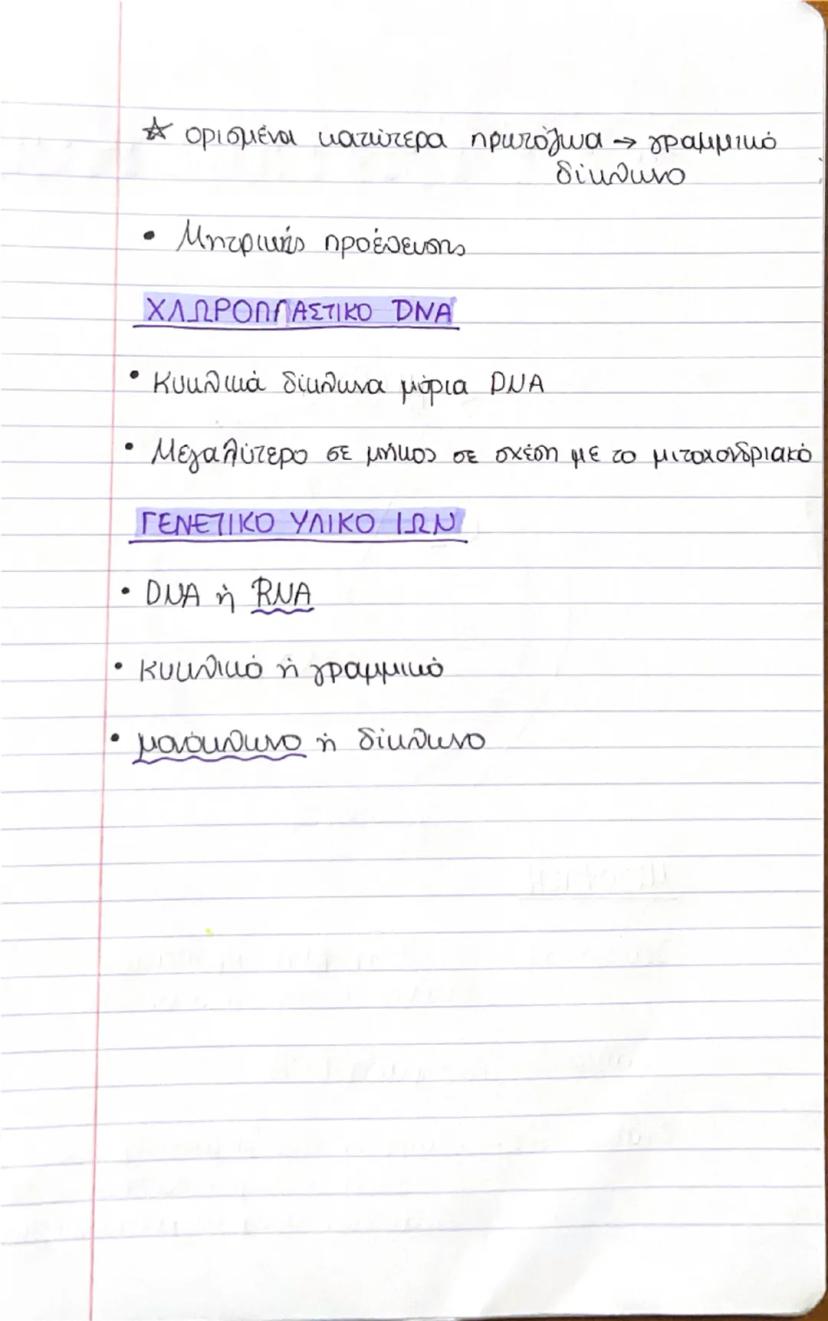 ☆ ορισμένα κατώτερα πρωτόζωα → γραμμικό
δίκλωνο
• Μητρικής προέλευσης
ΧΛΩΡΟΠΛΑΣΤΙΚΟ DNA
• Κυκλικά δίκλωνα μόρια DNA
• Μεγαλύτερο σε μήκος σε σχέση με το μιτοχονδριακό
ΓΕΝΕΤΙΚΟ ΥΛΙΚΟ ΙΩΝ
• DNA ή RNA
• κυκλικό ή γραμμικό
• μονόκλωνο ή δίκλωνο